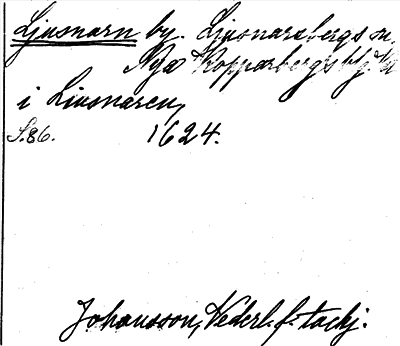 Ljusnarn by. Ljusnarsbergs sn.
Nya Kopparbergs blg.
i Liusnaren,
S. 86. 1624.
Johansson, Nederl. f. tackj.